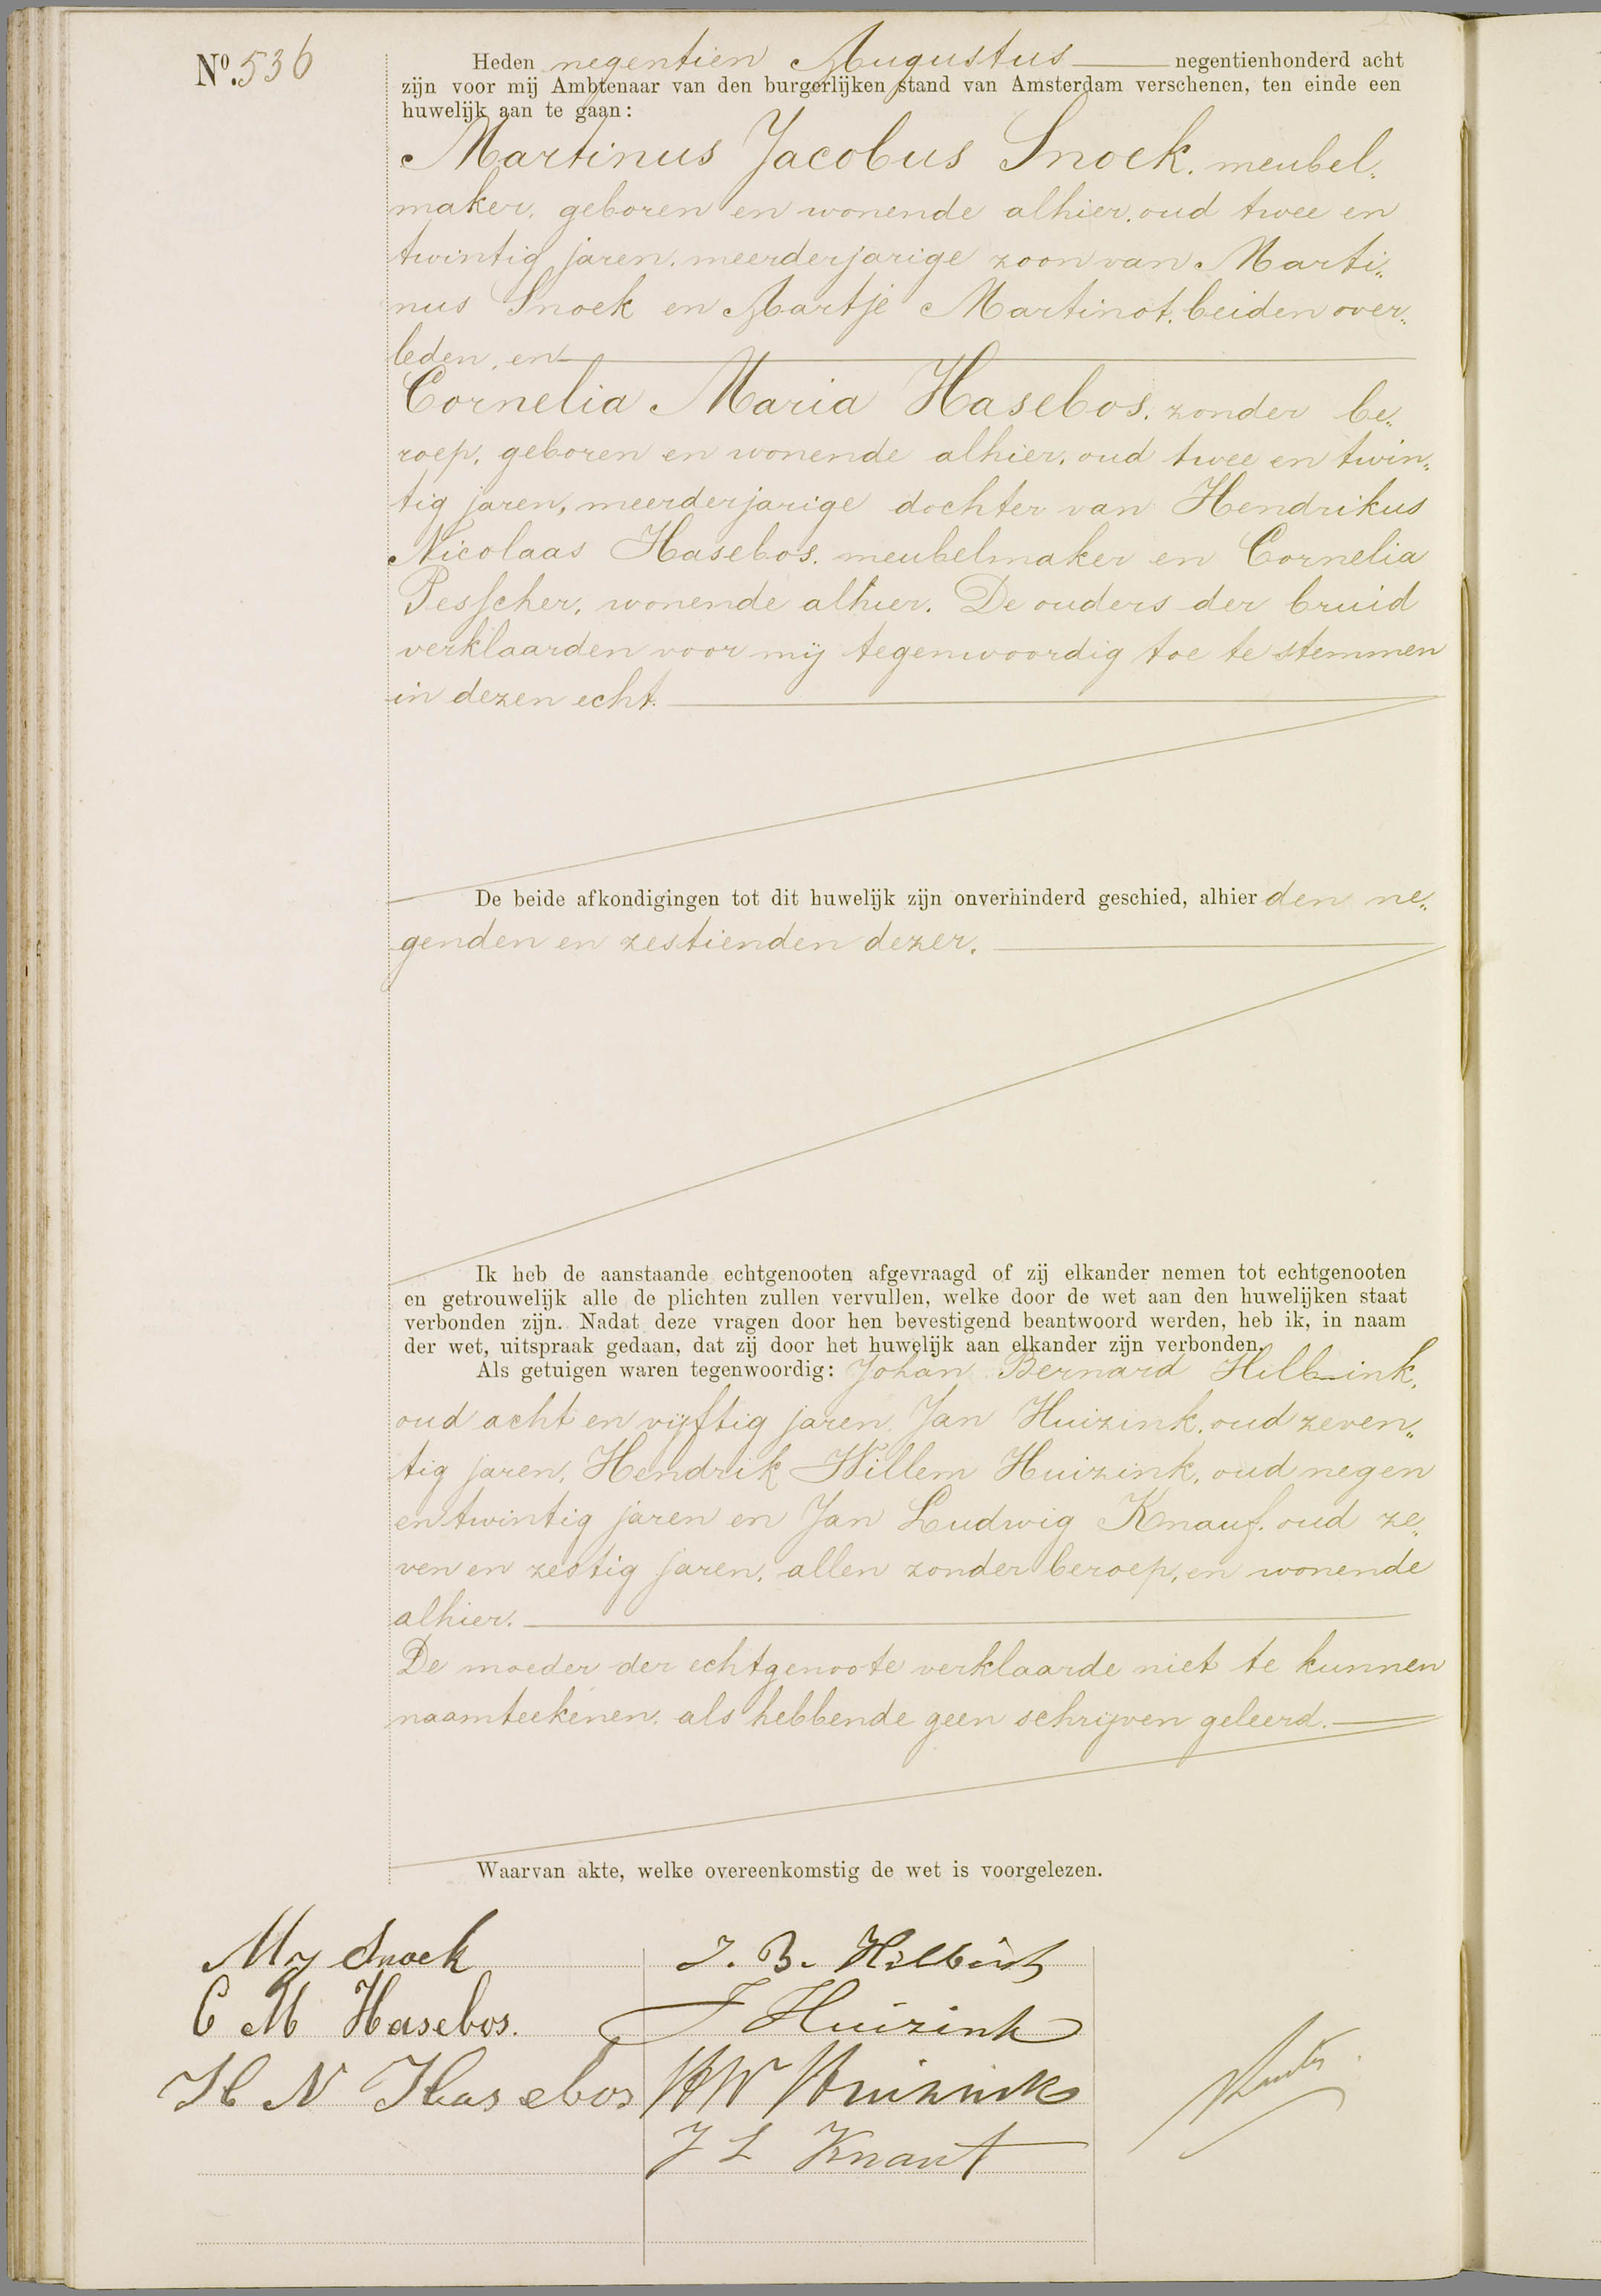 No. 536
Heden negentien Augustus negentienhonderd acht
zijn voor mij Ambtenaar van den burgerlijken stand van Amsterdam verschenen, ten einde een
huwelijk aan te gaan:
Martinus Jacobus Snoek, meubel„
maker, geboren en wonende alhier, oud twee en
twintig jaren, meerderjarige zoon van Marti„
nus Snoek en Aartje Martinot, beiden over„
leden, en
Cornelia Maria Hasebos, zonder be„
roep, geboren en wonende alhier, oud twee en twin„
tig jaren, meerderjarige dochter van Hendrikus
Nicolaas Hasebos, meubelmaker en Cornelia
Pesscher, wonende alhier. De ouders der bruid
verklaarden voor mij tegenwoordig toe te stemmen
in dezen echt.
De beide afkondigingen tot dit huwelijk zijn onverhinderd geschied, alhier den ne„
genden en zestienden dezer.
Ik heb de aanstaande echtgenooten afgevraagd of zij elkander nemen tot echtgenooten
en getrouwelijk alle de plichten zullen vervullen, welke door de wet aan den huwelijken staat
verbonden zijn. Nadat deze vragen door hen bevestigend beantwoord werden, heb ik, in naam
der wet, uitspraak gedaan, dat zij door het huwelijk aan elkander zijn verbonden.
Als getuigen waren tegenwoordig: Johan Bernard Hilbink,
oud acht en vijftig jaren, Jan Huizink, oud zeven„
tig jaren, Hendrik Willem Huizink, oud negen
en twintig jaren en Jan Ludwig Knauf, oud ze„
ven en zestig jaren, allen zonder beroep, en wonende
alhier.
De moeder der echtgenoote verklaarde niet te kunnen
naamteekenen, als hebbende geen schrijven geleerd.
Waarvan akte, welke overeenkomstig de wet is voorgelezen.
MJ Snoek
J. B. Hilbink
C M Hasebos.
J Huizink
H N Hasebos
HW Huizink
J L Knauf